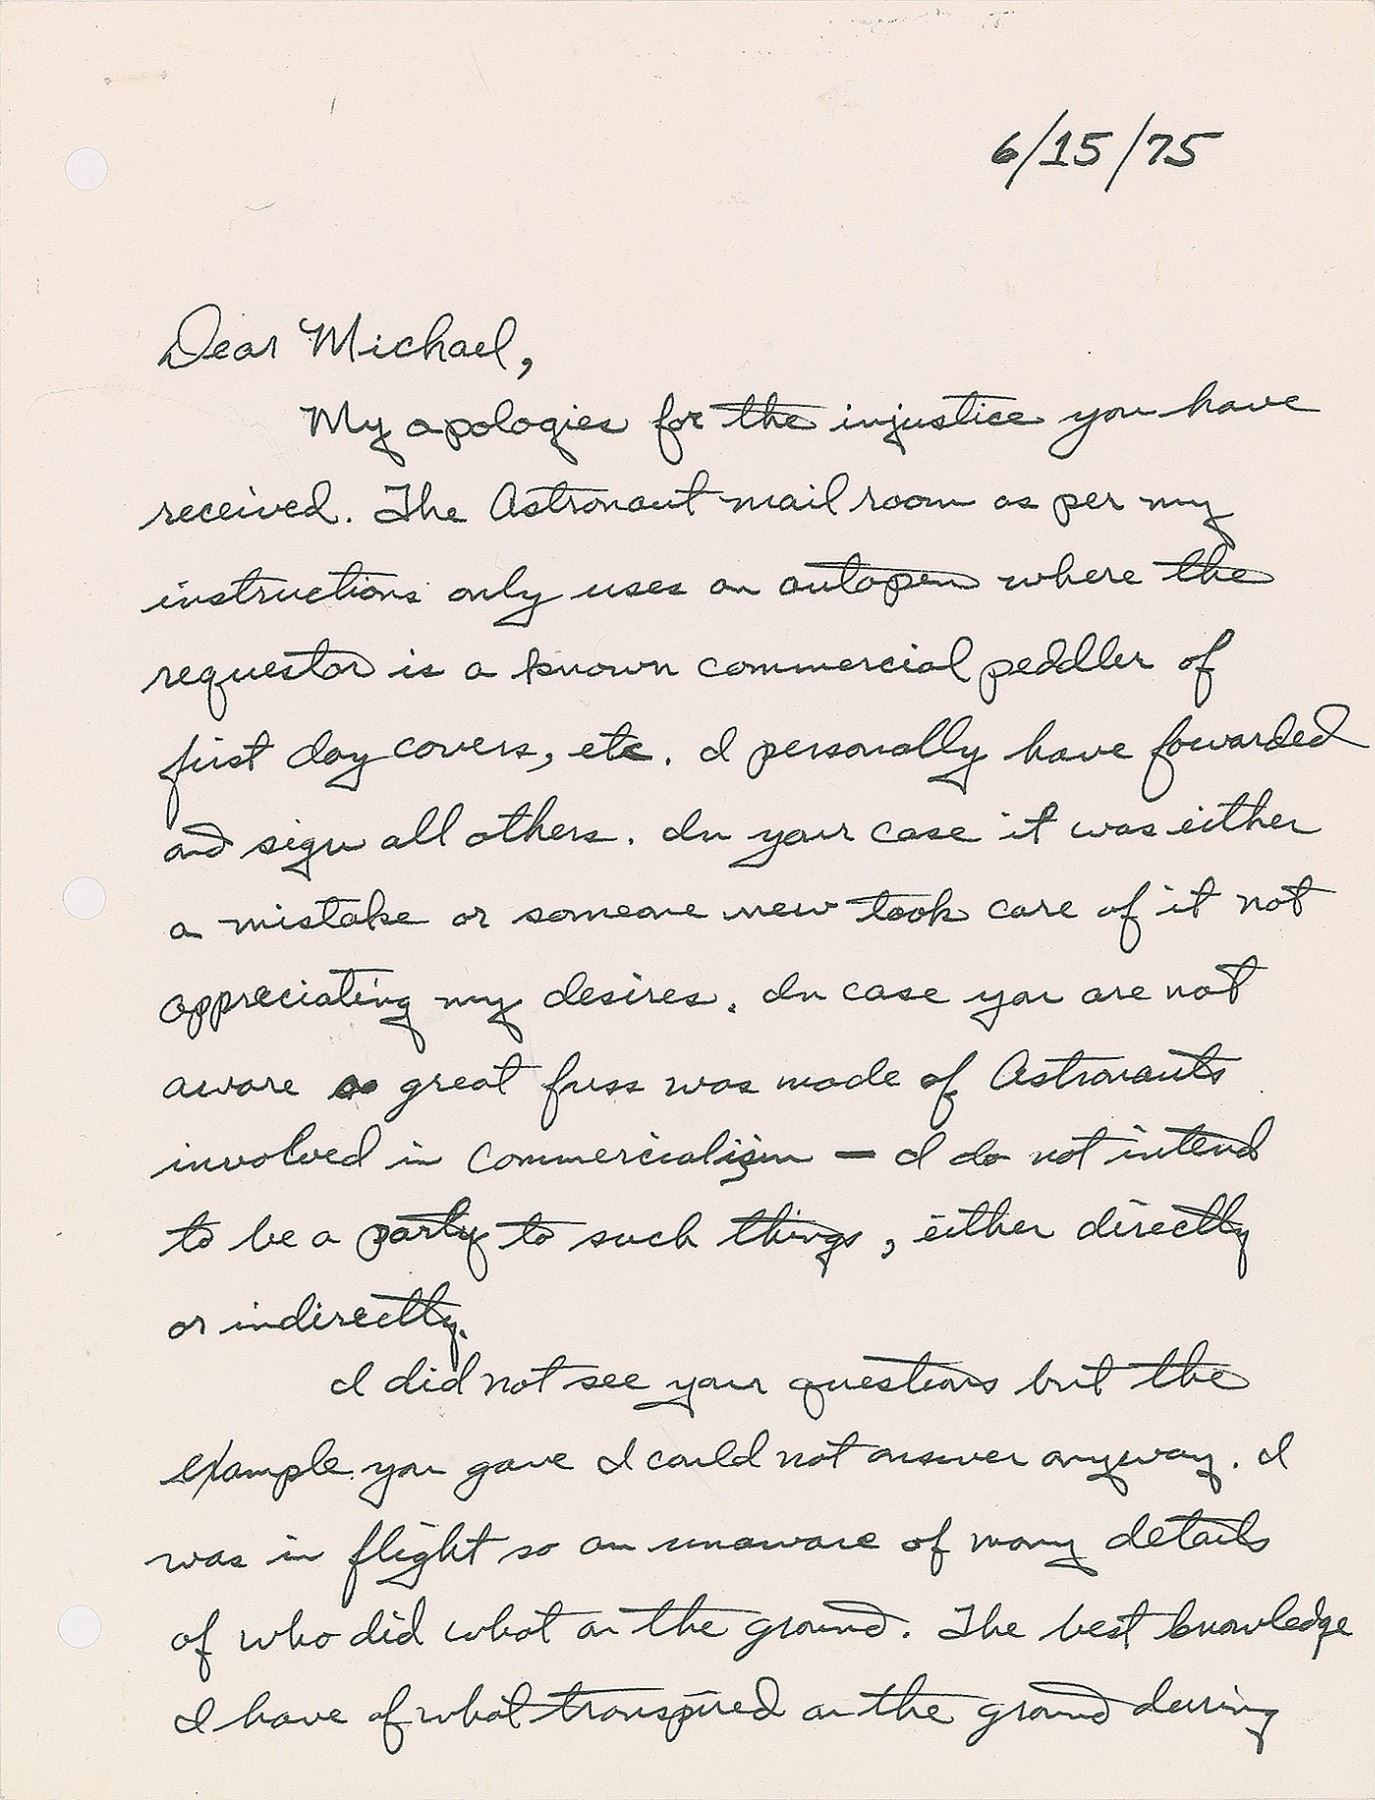 6/15/75
Dear Michael,
My apologies for the injustice you have
received. The Astronaut mail room as per my
instructions only uses an autopen where the
requestor is a known commercial peddler of
first day covers, etc. I personally have fowarded
and sign all others. In your case it was either
a mistake or someone new took care of it not
appreciating my desires. In case you are not
aware a great fuss was made of Astronauts
involved in commercialism — I do not intend
to be a party to such things, either directly
or indirectly.
I did not see your questions but the
example you gave I could not answer anyway. I
was in flight so am unaware of many details
of who did what on the ground. The best knowledge
I have of what transpired on the ground during